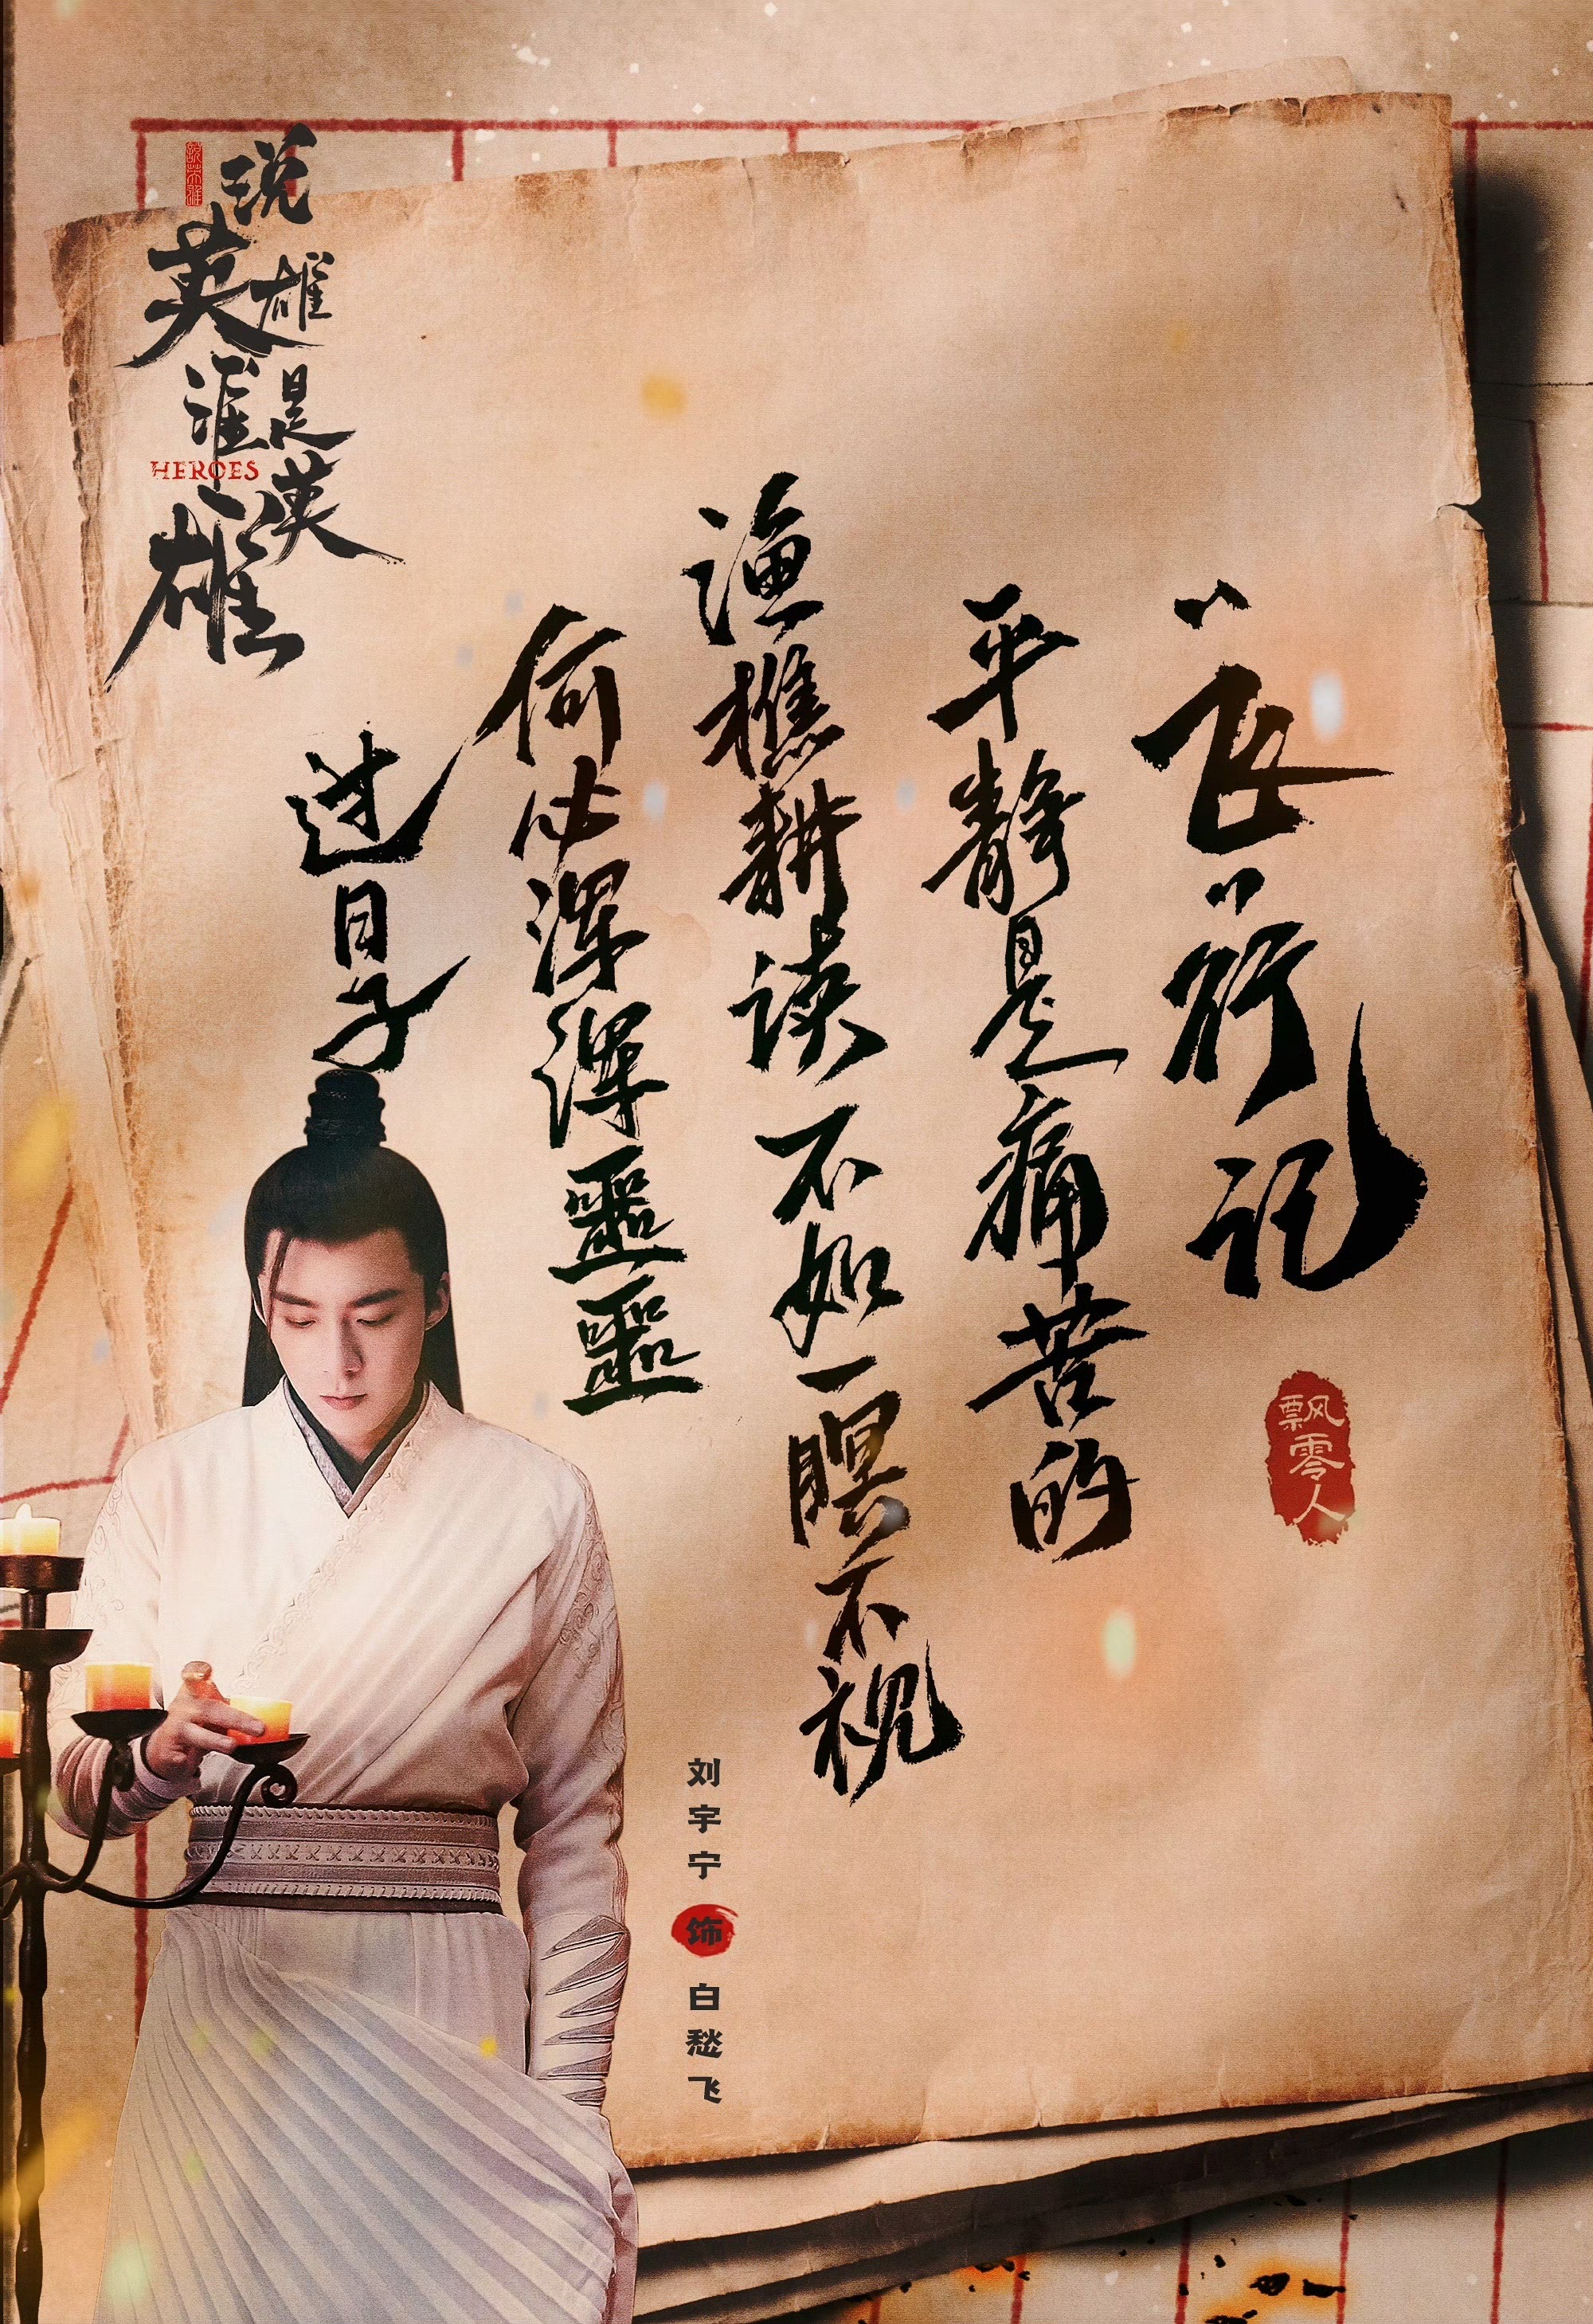 说英雄
谁是英雄
HEROES
“飞”行记
平静是痛苦的
渔樵耕读不如一瞑不视
何必浑浑噩噩
过日子
飘零人
刘宇宁 饰 白愁飞